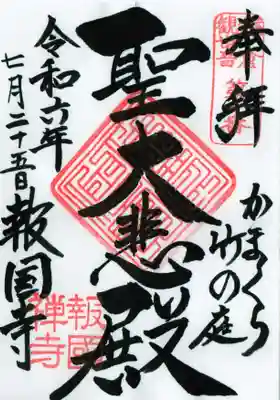 奉拝
かまくら
竹の庭
聖大悲殿
令和六年
七月二十五日
報国寺
報國
禅寺